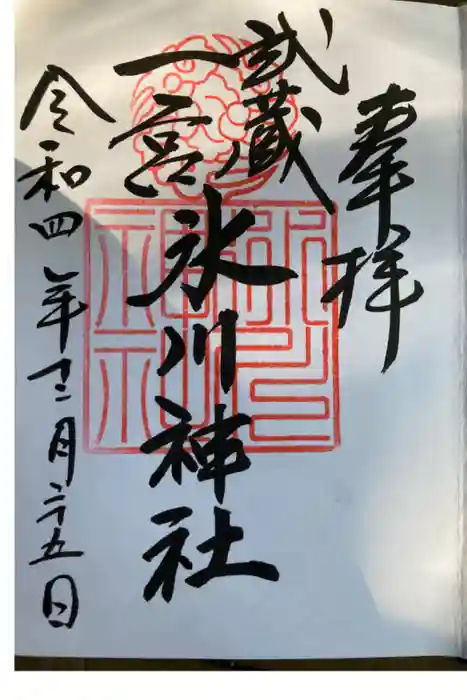 奉拝
武蔵
一宮
氷川神社
令和四年十二月二十五日
氷川
神社